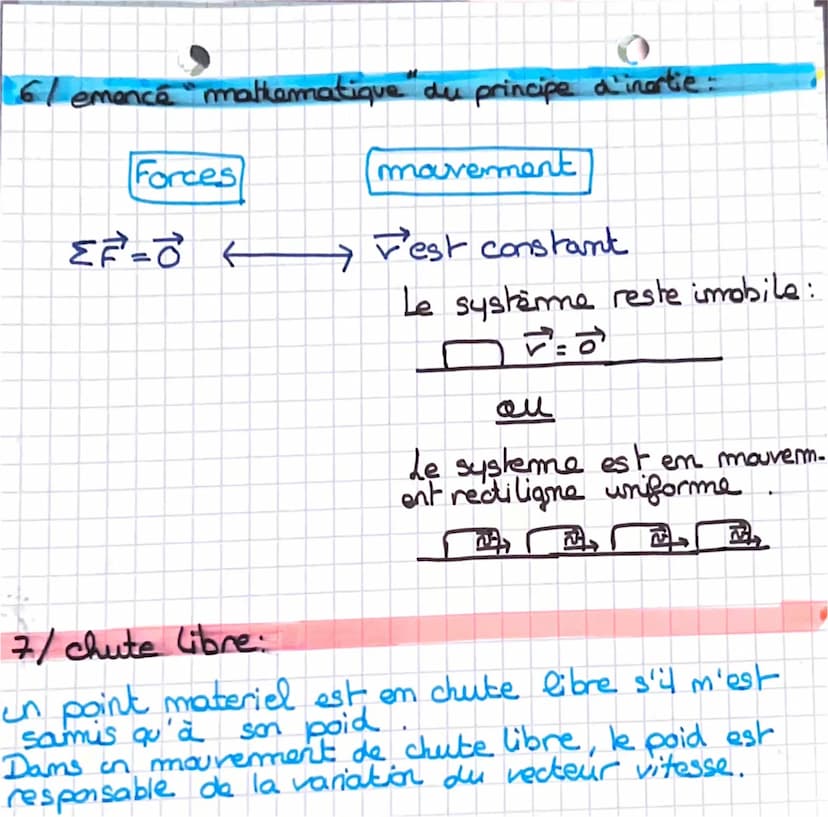 6/ enoncé "mathematique" du principe d'inertie :
Forces mouvement
Σ F⃗ = 0⃗ ⟷ v⃗ est constant
Le système reste imobile :
v⃗ = 0⃗
ou
Le systeme est en mouvem-
ent rectiligne uniforme .
v⃗ v⃗ v⃗ v⃗
7/ chute libre :
un point materiel est en chute libre s'il n'est
samis qu'à son poid .
Dans un mouvement de chute libre, le poid est
responsable de la variation du vecteur vitesse.